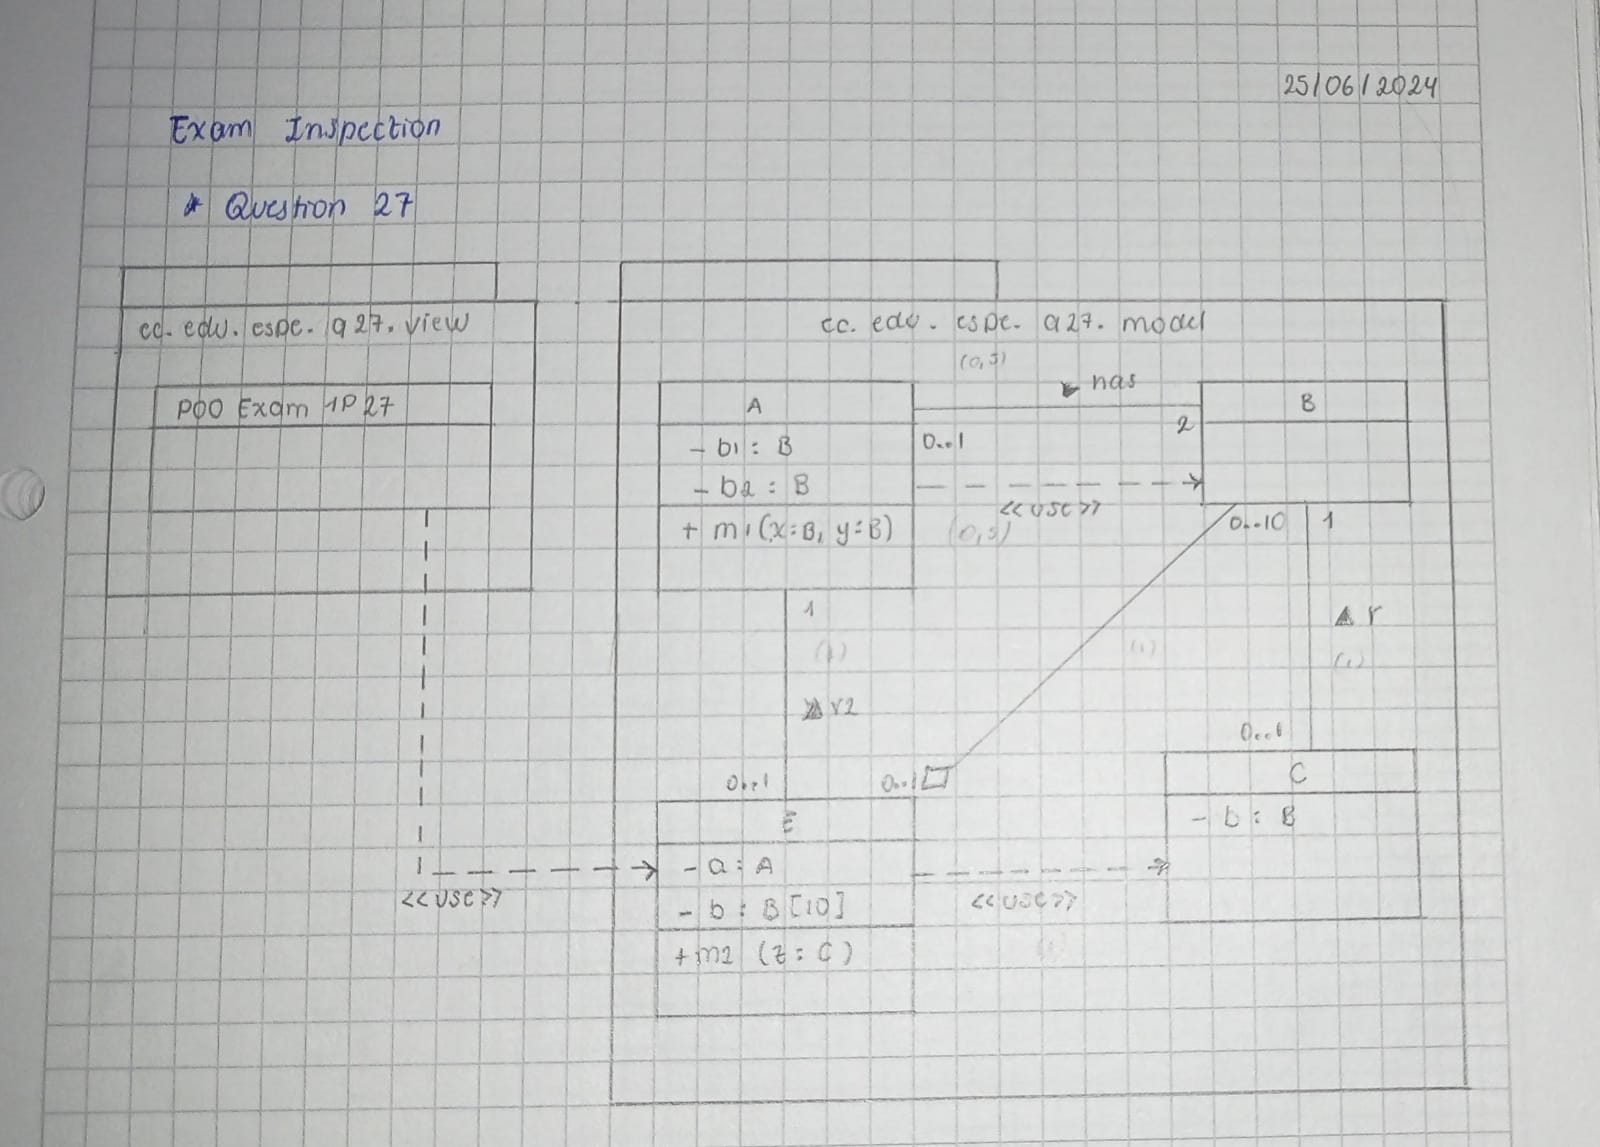 25/06/2024
Exam Inspection
* Question 27
ec. edu. espe. q27. view
POO Exam 1P 27
<<use>>
ec. edu. espe. q27. model
A
- b1 : B
- b2 : B
+ m1(x:B, y:B)
has
0..1
2
<<use>>
B
0..10
1
r
0..1
C
- b : B
1
r2
0..1
0..1
E
- a : A
- b : B [10]
+ m2 (z : C)
<<use>>